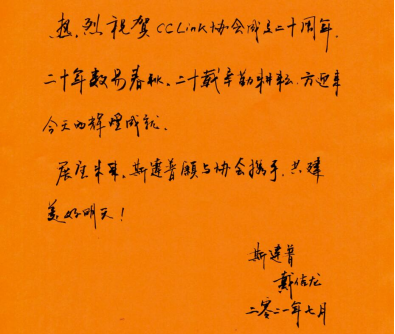 热烈祝贺CCLink协会成立二十周年.
二十年数易春秋.二十载辛勤耕耘.方迎来
今天的辉煌成就.
展望未来,斯建普愿与协会携手.共建
美好明天!
斯建普
戴
二零二一年七月